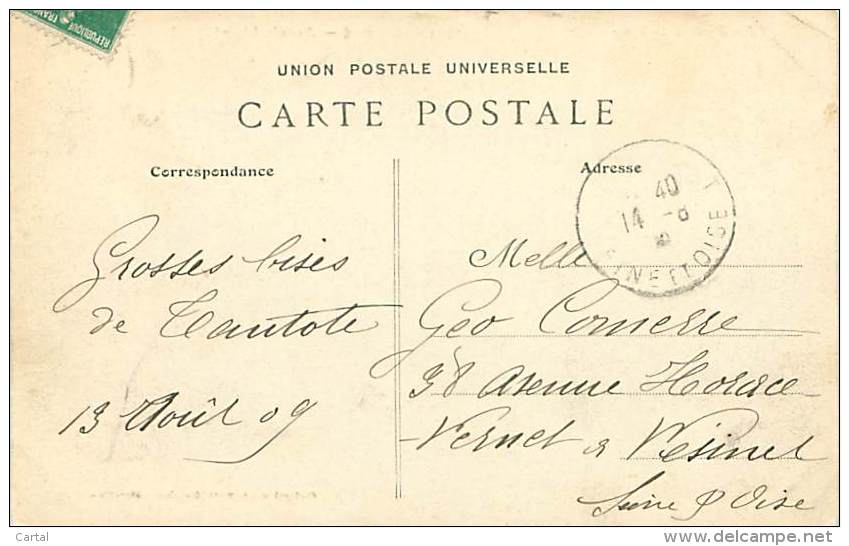 REPUBLIQUE FRANC
UNION POSTALE UNIVERSELLE
CARTE POSTALE
Correspondance
Adresse
40
14 -8
INE ET OISE
Grosses bises
de Tantote
13 Août 09
Melle
Geo Comerre
38 Avenue Horace
Vernet à Vésinet
Seine & Oise
Cartal
delcampe.net